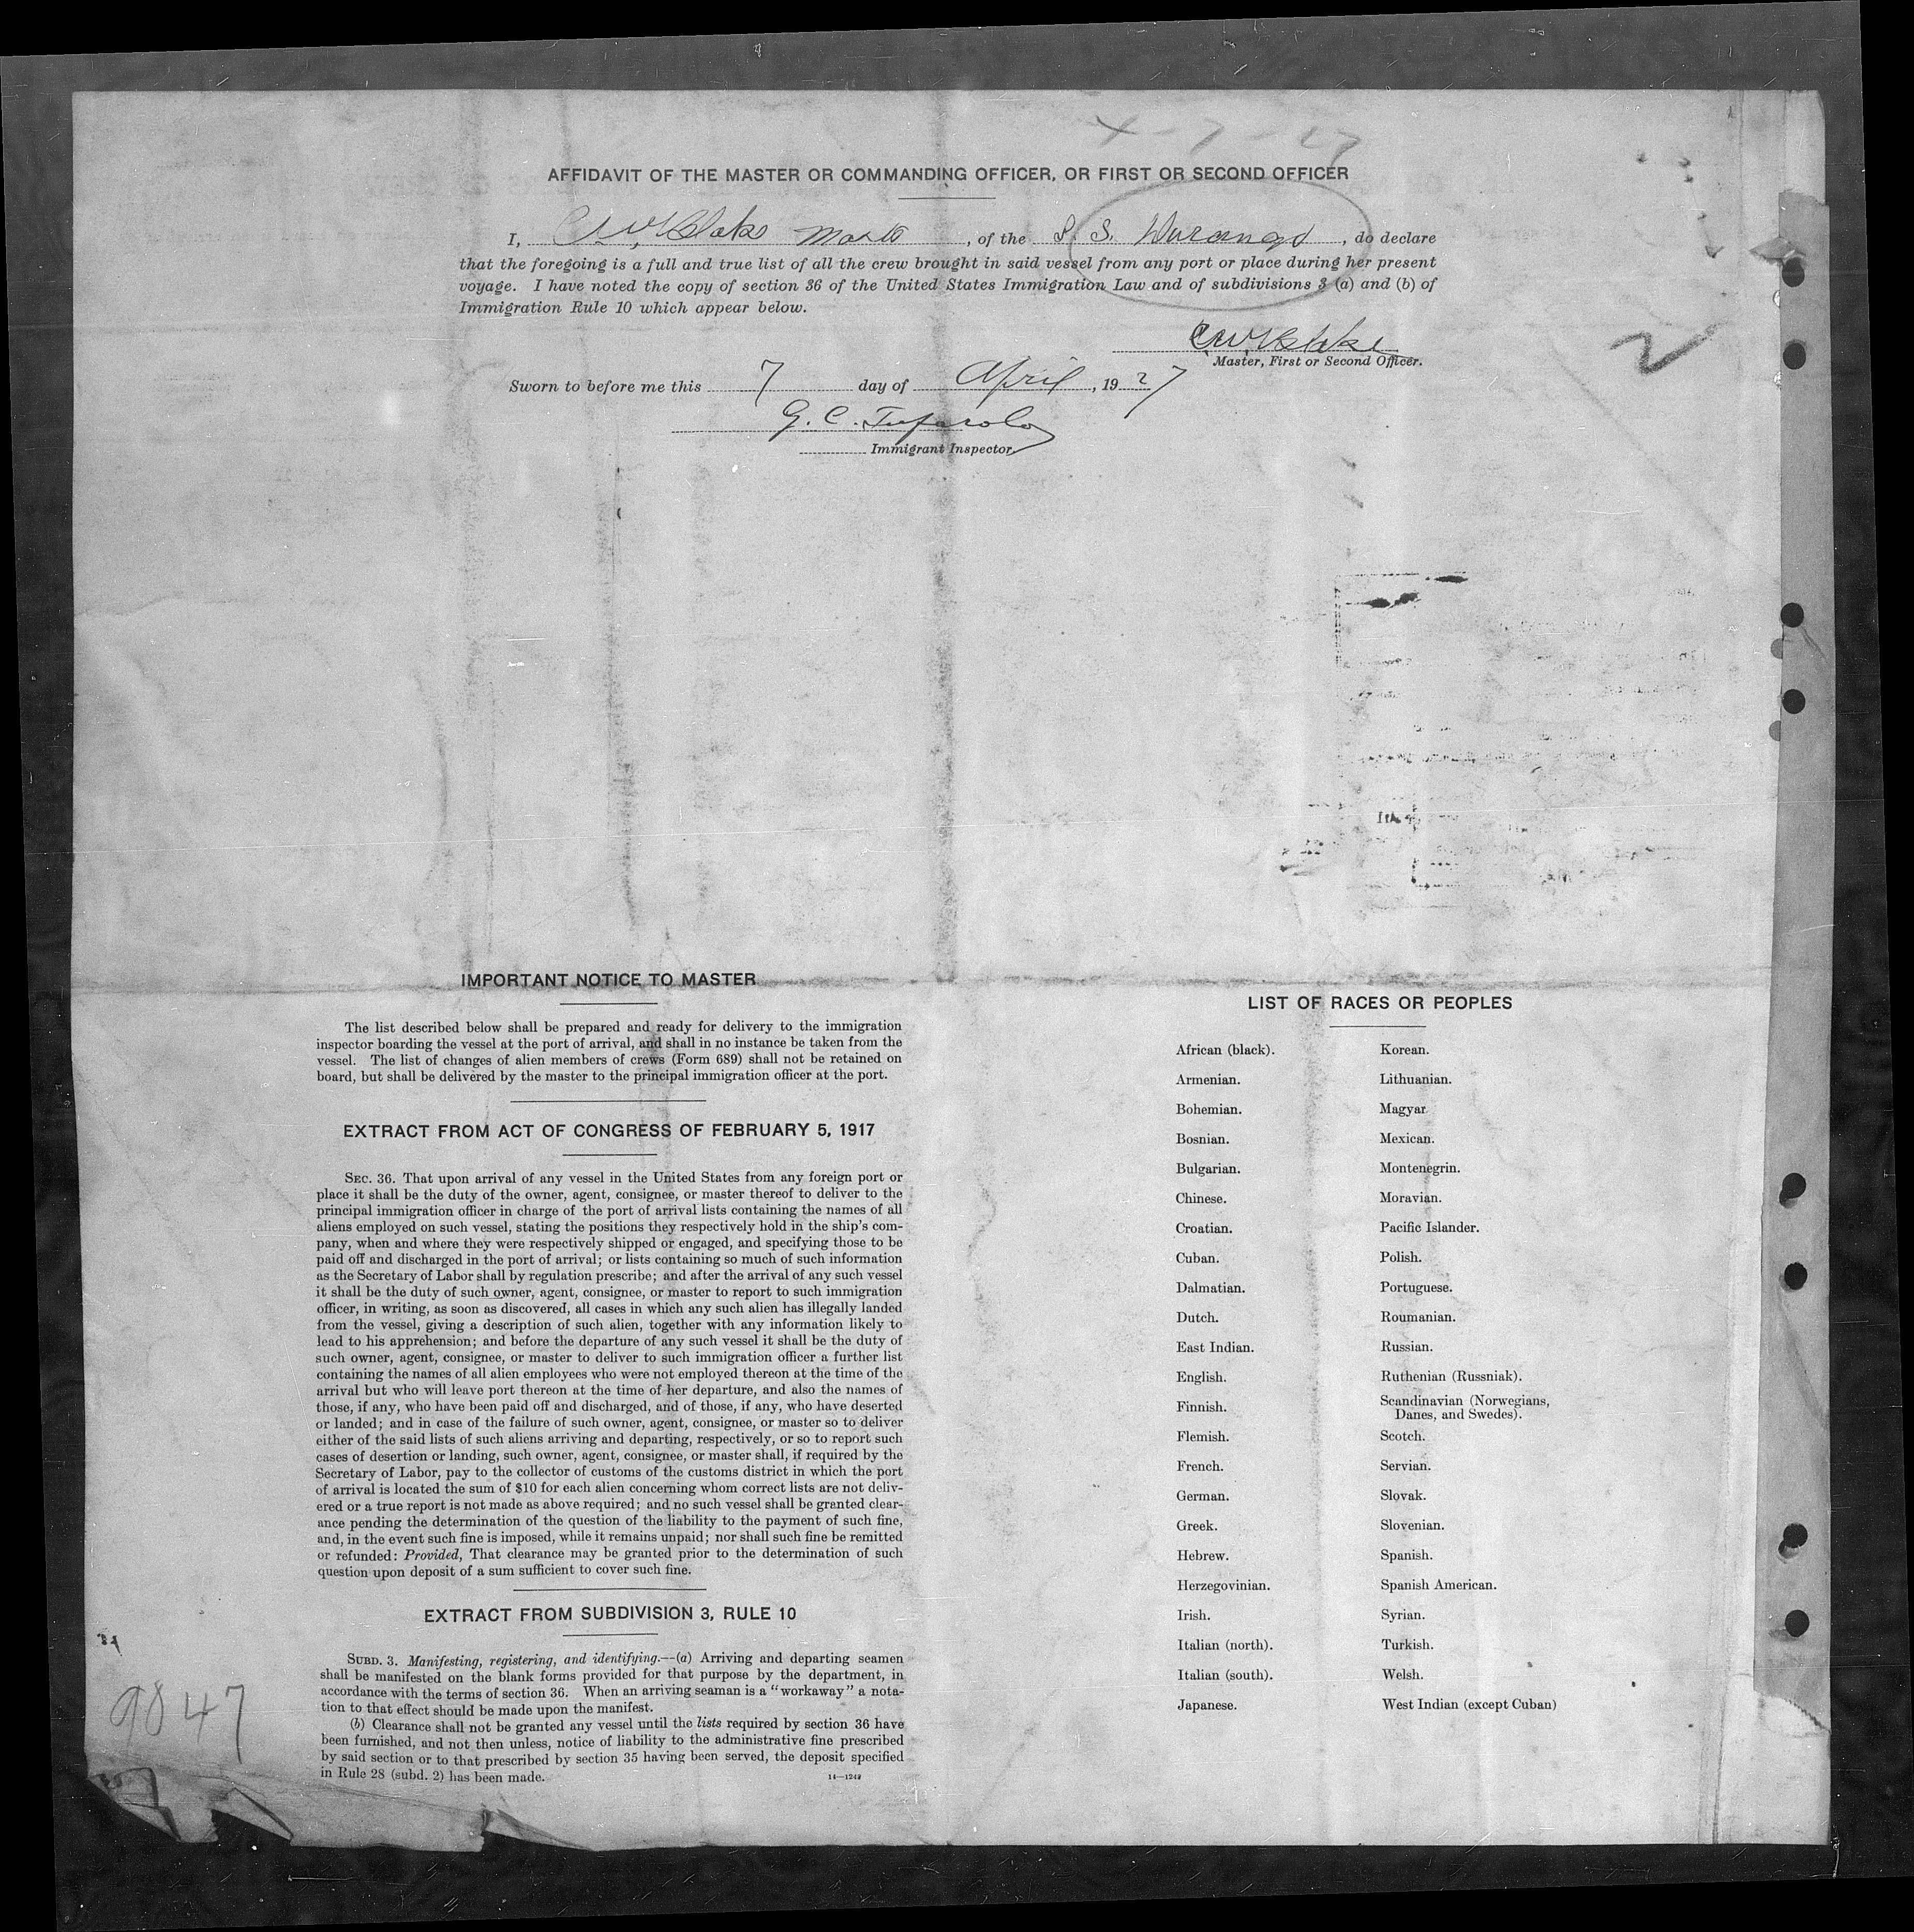 4-7-27
AFFIDAVIT OF THE MASTER OR COMMANDING OFFICER, OR FIRST OR SECOND OFFICER
I, C.W. Blake Master, of the S. S. Durango, do declare
that the foregoing is a full and true list of all the crew brought in said vessel from any port or place during her present
voyage. I have noted the copy of section 36 of the United States Immigration Law and of subdivisions 3 (a) and (b) of
Immigration Rule 10 which appear below.
Master, First or Second Officer.
2
Sworn to before me this 7 day of April, 1927
G. C.
Immigrant Inspector
IMPORTANT NOTICE TO MASTER
The list described below shall be prepared and ready for delivery to the immigration
inspector boarding the vessel at the port of arrival, and shall in no instance be taken from the
vessel. The list of changes of alien members of crews (Form 689) shall not be retained on
board, but shall be delivered by the master to the principal immigration officer at the port.
EXTRACT FROM ACT OF CONGRESS OF FEBRUARY 5, 1917
SEC. 36. That upon arrival of any vessel in the United States from any foreign port or
place it shall be the duty of the owner, agent, consignee, or master thereof to deliver to the
principal immigration officer in charge of the port of arrival lists containing the names of all
aliens employed on such vessel, stating the positions they respectively hold in the ship's com-
pany, when and where they were respectively shipped or engaged, and specifying those to be
paid off and discharged in the port of arrival; or lists containing so much of such information
as the Secretary of Labor shall by regulation prescribe; and after the arrival of any such vessel
it shall be the duty of such owner, agent, consignee, or master to report to such immigration
officer, in writing, as soon as discovered, all cases in which any such alien has illegally landed
from the vessel, giving a description of such alien, together with any information likely to
lead to his apprehension; and before the departure of any such vessel it shall be the duty of
such owner, agent, consignee, or master to deliver to such immigration officer a further list
containing the names of all alien employees who were not employed thereon at the time of the
arrival but who will leave port thereon at the time of her departure, and also the names of
those, if any, who have been paid off and discharged, and of those, if any, who have deserted
or landed; and in case of the failure of such owner, agent, consignee, or master so to deliver
either of the said lists of such aliens arriving and departing, respectively, or so to report such
cases of desertion or landing, such owner, agent, consignee, or master shall, if required by the
Secretary of Labor, pay to the collector of customs of the customs district in which the port
of arrival is located the sum of $10 for each alien concerning whom correct lists are not deliv-
ered or a true report is not made as above required; and no such vessel shall be granted clear-
ance pending the determination of the question of the liability to the payment of such fine,
and, in the event such fine is imposed, while it remains unpaid; nor shall such fine be remitted
or refunded: Provided, That clearance may be granted prior to the determination of such
question upon deposit of a sum sufficient to cover such fine.
EXTRACT FROM SUBDIVISION 3, RULE 10
SUBD. 3. Manifesting, registering, and identifying.—(a) Arriving and departing seamen
shall be manifested on the blank forms provided for that purpose by the department, in
accordance with the terms of section 36. When an arriving seaman is a "workaway" a nota-
tion to that effect should be made upon the manifest.
(b) Clearance shall not be granted any vessel until the lists required by section 36 have
been furnished, and not then unless, notice of liability to the administrative fine prescribed
by said section or to that prescribed by section 35 having been served, the deposit specified
in Rule 28 (subd. 2) has been made.
9847
LIST OF RACES OR PEOPLES
African (black).
Armenian.
Bohemian.
Bosnian.
Bulgarian.
Chinese.
Croatian.
Cuban.
Dalmatian.
Dutch.
East Indian.
English.
Finnish.
Flemish.
French.
German.
Greek.
Hebrew.
Herzegovinian.
Irish.
Italian (north).
Italian (south).
Japanese.
Korean.
Lithuanian.
Magyar.
Mexican.
Montenegrin.
Moravian.
Pacific Islander.
Polish.
Portuguese.
Roumanian.
Russian.
Ruthenian (Russniak).
Scandinavian (Norwegians,
Danes, and Swedes).
Scotch.
Servian.
Slovak.
Slovenian.
Spanish.
Spanish American.
Syrian.
Turkish.
Welsh.
West Indian (except Cuban)